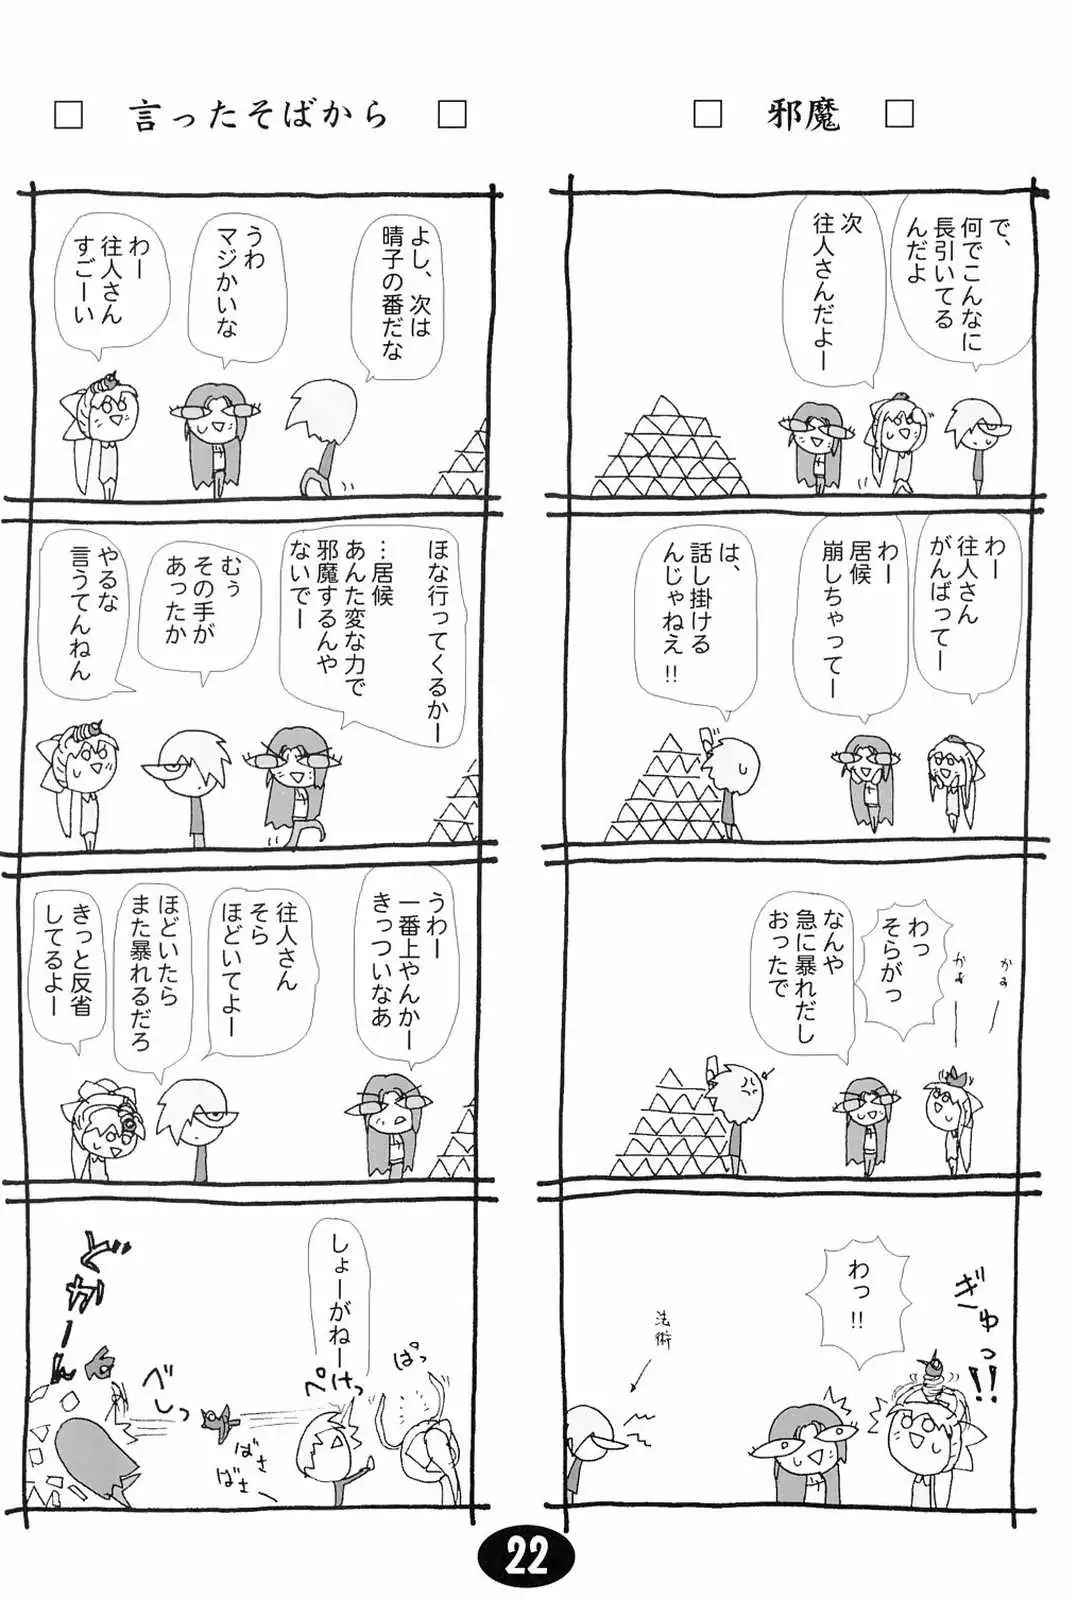 邪魔
で、
何でこんなに
長引いてる
んだよ
次
往人さんだよー
わー
往人さん
がんばってー
わー
居候
崩しちゃってー
は、
話し掛ける
んじゃねえ!!
かぁ
かぁ
わっ
そらがっ
なんや
急に暴れだし
おったで
ぎゅっ!!
わっ!!
法術
言ったそばから
よし、次は
晴子の番だな
うわ
マジかいな
わー
往人さん
すごーい
ほな行ってくるかー
…居候
あんた変な力で
邪魔するんや
ないでー
むぅ
その手が
あったか
やるな
言うてんねん
うわー
一番上やんかー
きっついなあ
往人さん
そら
ほどいてよー
ほどいたら
また暴れるだろ
きっと反省
してるよー
ぱっ
しょーがねー
ぺけっ
ばさ
ばさ
べしっ
どかーん
22